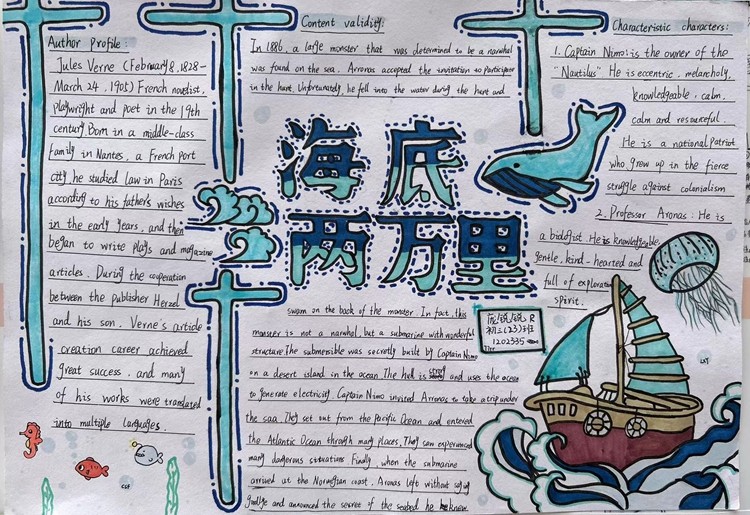 Author Profile:
Jules Verne (February 8, 1828-
March 24, 1905) French novelist,
playwright and poet in the 19th
century Born in a middle-class
family in Nantes, a French port
city he studied law in Paris
according to his father's wishes
in the early years, and then
began to write plays and magazine
articles. During the cooperation
between the publisher Herzel
and his son, Verne's article
creation career achieved
great success, and many
of his works were translated
into multiple languages.
Content validity:
In 1886, a large monster that was determined to be a narwhal
was found on the sea. Aronas accepted the invitation to participate
in the hunt. Unfortunately, he fell into the water during the hunt and
海底
两万里
swam on the back of the monster. In fact, this
monster is not a narwhal, but a submarine with wonderful
structure The submersible was secretly built by Captain Nimo
on a desert island in the ocean The hull is strong and uses the ocean
to generate electricity. Captain Nimo invited Arronas to take a trip under
the saa. They set out from the Pacific Ocean and entered
the Atlantic Ocean through many places. They som experienced
many dangerous situations Finally, when the submarine
arrived at the Norwegian coast, Aronas left without saying
goodbye and announced the secret of the seabed he knew.
Characteristic characters:
1. Captain Nimo: is the owner of the
"Nautilus" He is eccentric, melancholy,
knowledgeable, calm,
calm and resourceful.
He is a national patriot
who grew up in the fierce
struggle against colonialism
2. Professor Aronas: He is
a biologist He is knowledgeable,
gentle, kind-hearted and
full of exploration
spirit.
初三(23)班
1202335